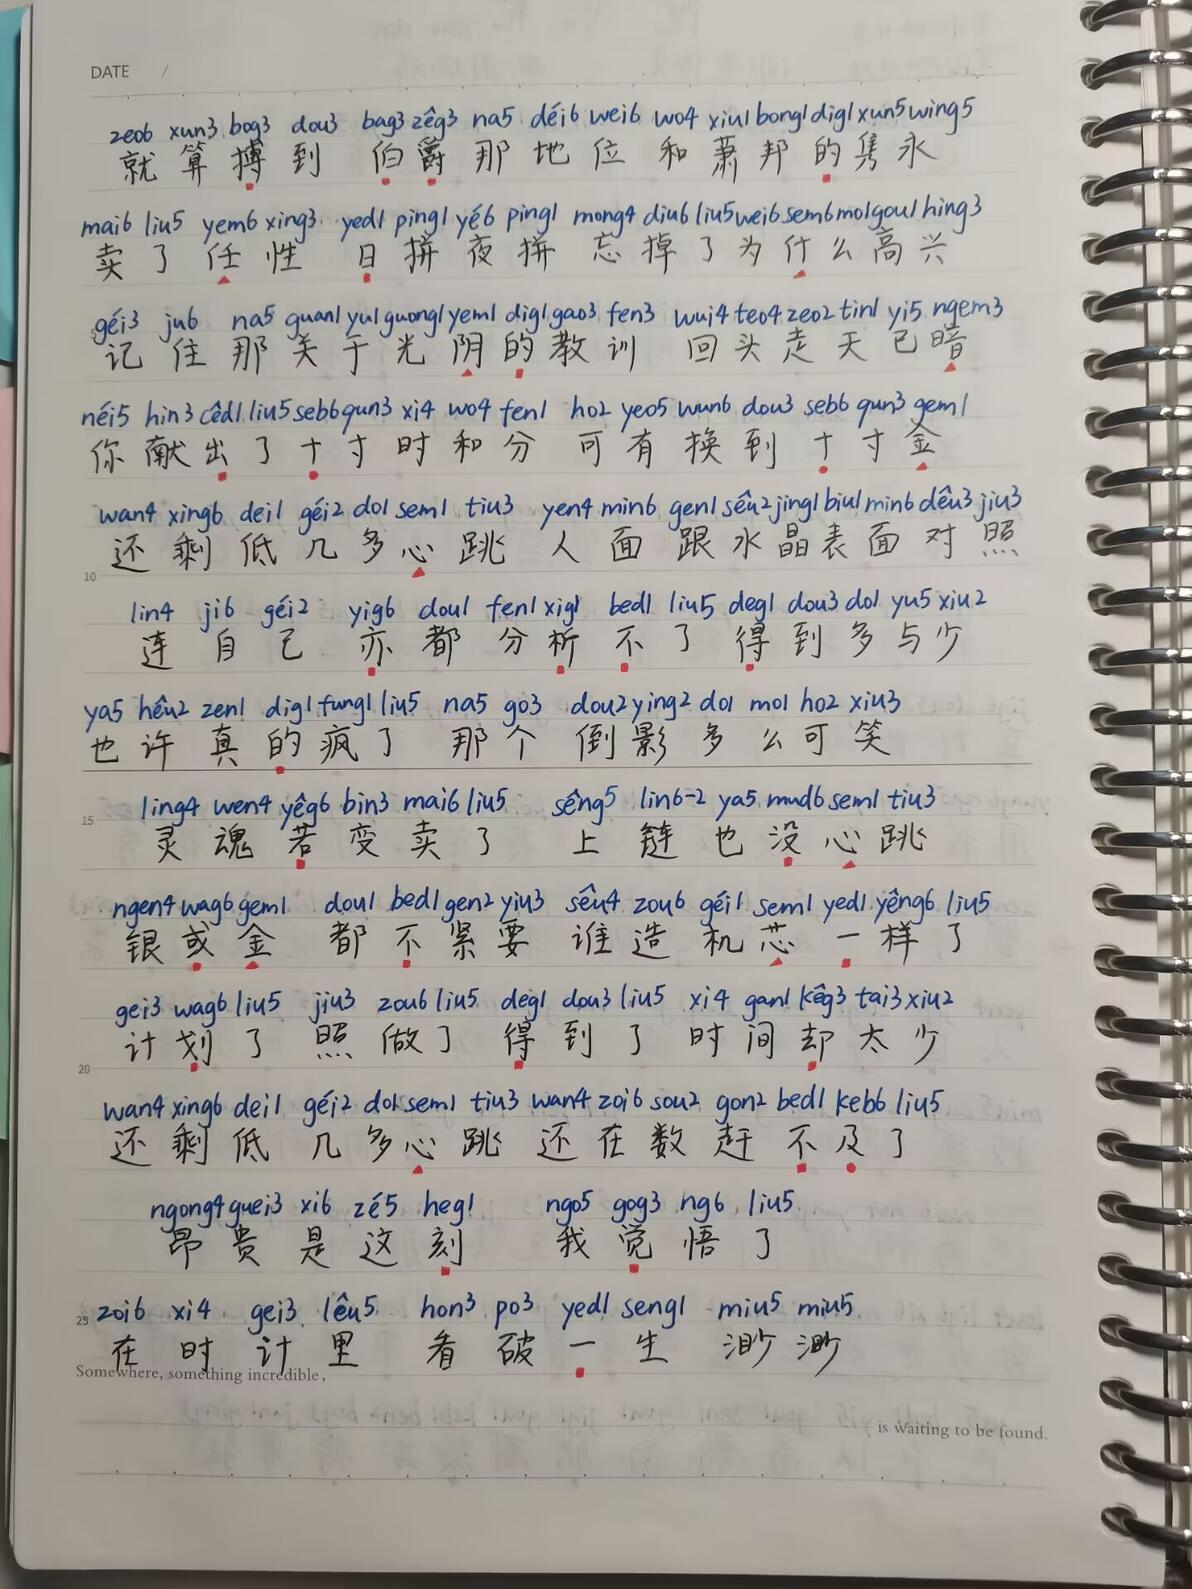 DATE /
zeo6 xun3 bog3 dou3 bag3 zêg3 na5 déi6 wei6 wo4 xiu1 bong1 dig1 xun5 wing5
就算搏到 伯爵那地位 和萧邦的隽永
mai6 liu5 yem6 xing3 yed1 ping1 yé6 ping1 mong4 diu6 liu5 wei6 sem6 mo1 gou1 hing3
卖了任性 日拼夜拼 忘掉了为什么高兴
géi3 ju6 na5 guan1 yu1 guong1 yem1 dig1 gao3 fen3 wui4 teo4 zeo2 tin1 yi5 ngem3
记住那关于光阴的教训 回头走天已暗
néi5 hin3 cêd1 liu5 seb6 qun3 xi4 wo4 fen1 ho2 yeo5 wun6 dou3 seb6 qun3 gem1
你献出了十寸时和分 可有换到十寸金
wan4 xing6 dei1 géi2 do1 sem1 tiu3 yen4 min6 gen1 sêu2 jing1 biu1 min6 dêu3 jiu3
还剩低几多心跳 人面跟水晶表面对照
10
lin4 ji6 géi2 yig6 dou1 fen1 xig1 bed1 liu5 deg1 dou3 do1 yu5 xiu2
连自己 亦都分析不了 得到多与少
ya5 hêu2 zen1 dig1 fung1 liu5 na5 go3 dou2 ying2 do1 mo1 ho2 xiu3
也许真的疯了 那个倒影多么可笑
ling4 wen4 yêg6 bin3 mai6 liu5 sêng5 lin6-2 ya5 mud6 sem1 tiu3
15
灵魂若变卖了 上链也没心跳
ngen4 wag6 gem1 dou1 bed1 gen2 yiu3 sêu4 zou6 géi1 sem1 yed1 yêng6 liu5
银或金 都不紧要 谁造机芯一样了
gei3 wag6 liu5 jiu3 zou6 liu5 deg1 dou3 liu5 xi4 gan1 kêg3 tai3 xiu2
计划了 照做了 得到了 时间却太少
20
wan4 xing6 dei1 géi2 do1 sem1 tiu3 wan4 zoi6 sou2 gon2 bed1 keb6 liu5
还剩低几多心跳 还在数赶不及了
ngong4 guei3 xi6 zé5 heg1 ngo5 gog3 ng6 liu5
昂贵是这刻 我觉悟了
25 zoi6 xi4 gei3 lêu5 hon3 po3 yed1 seng1 miu5 miu5
在时计里 看破一生 渺渺
Somewhere, something incredible,
is waiting to be found.